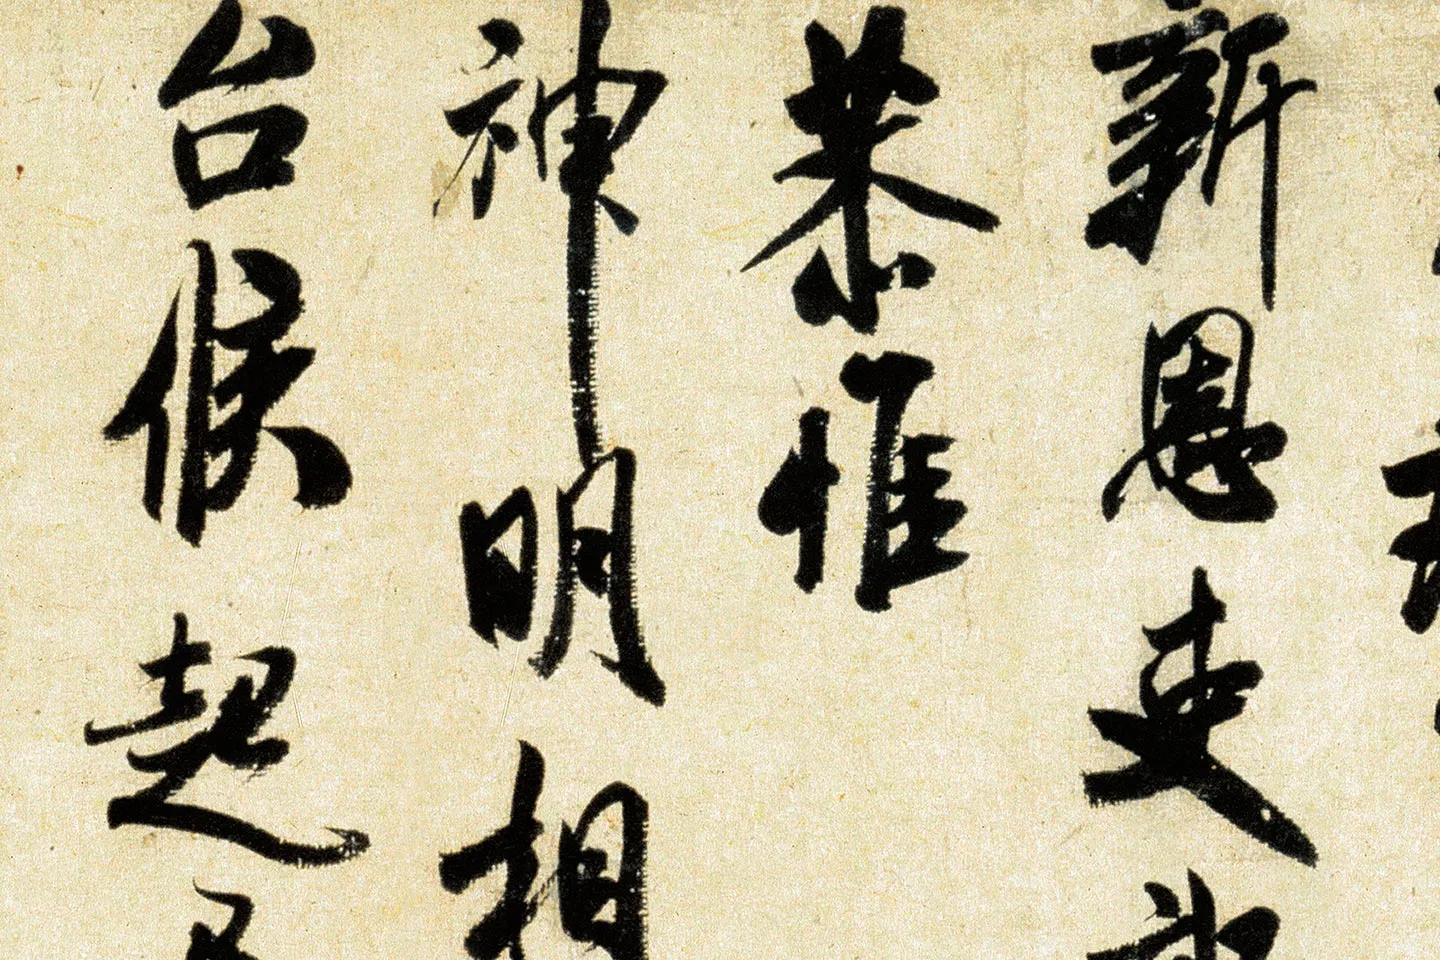 新恩吏部
恭惟
神明相
台候起居